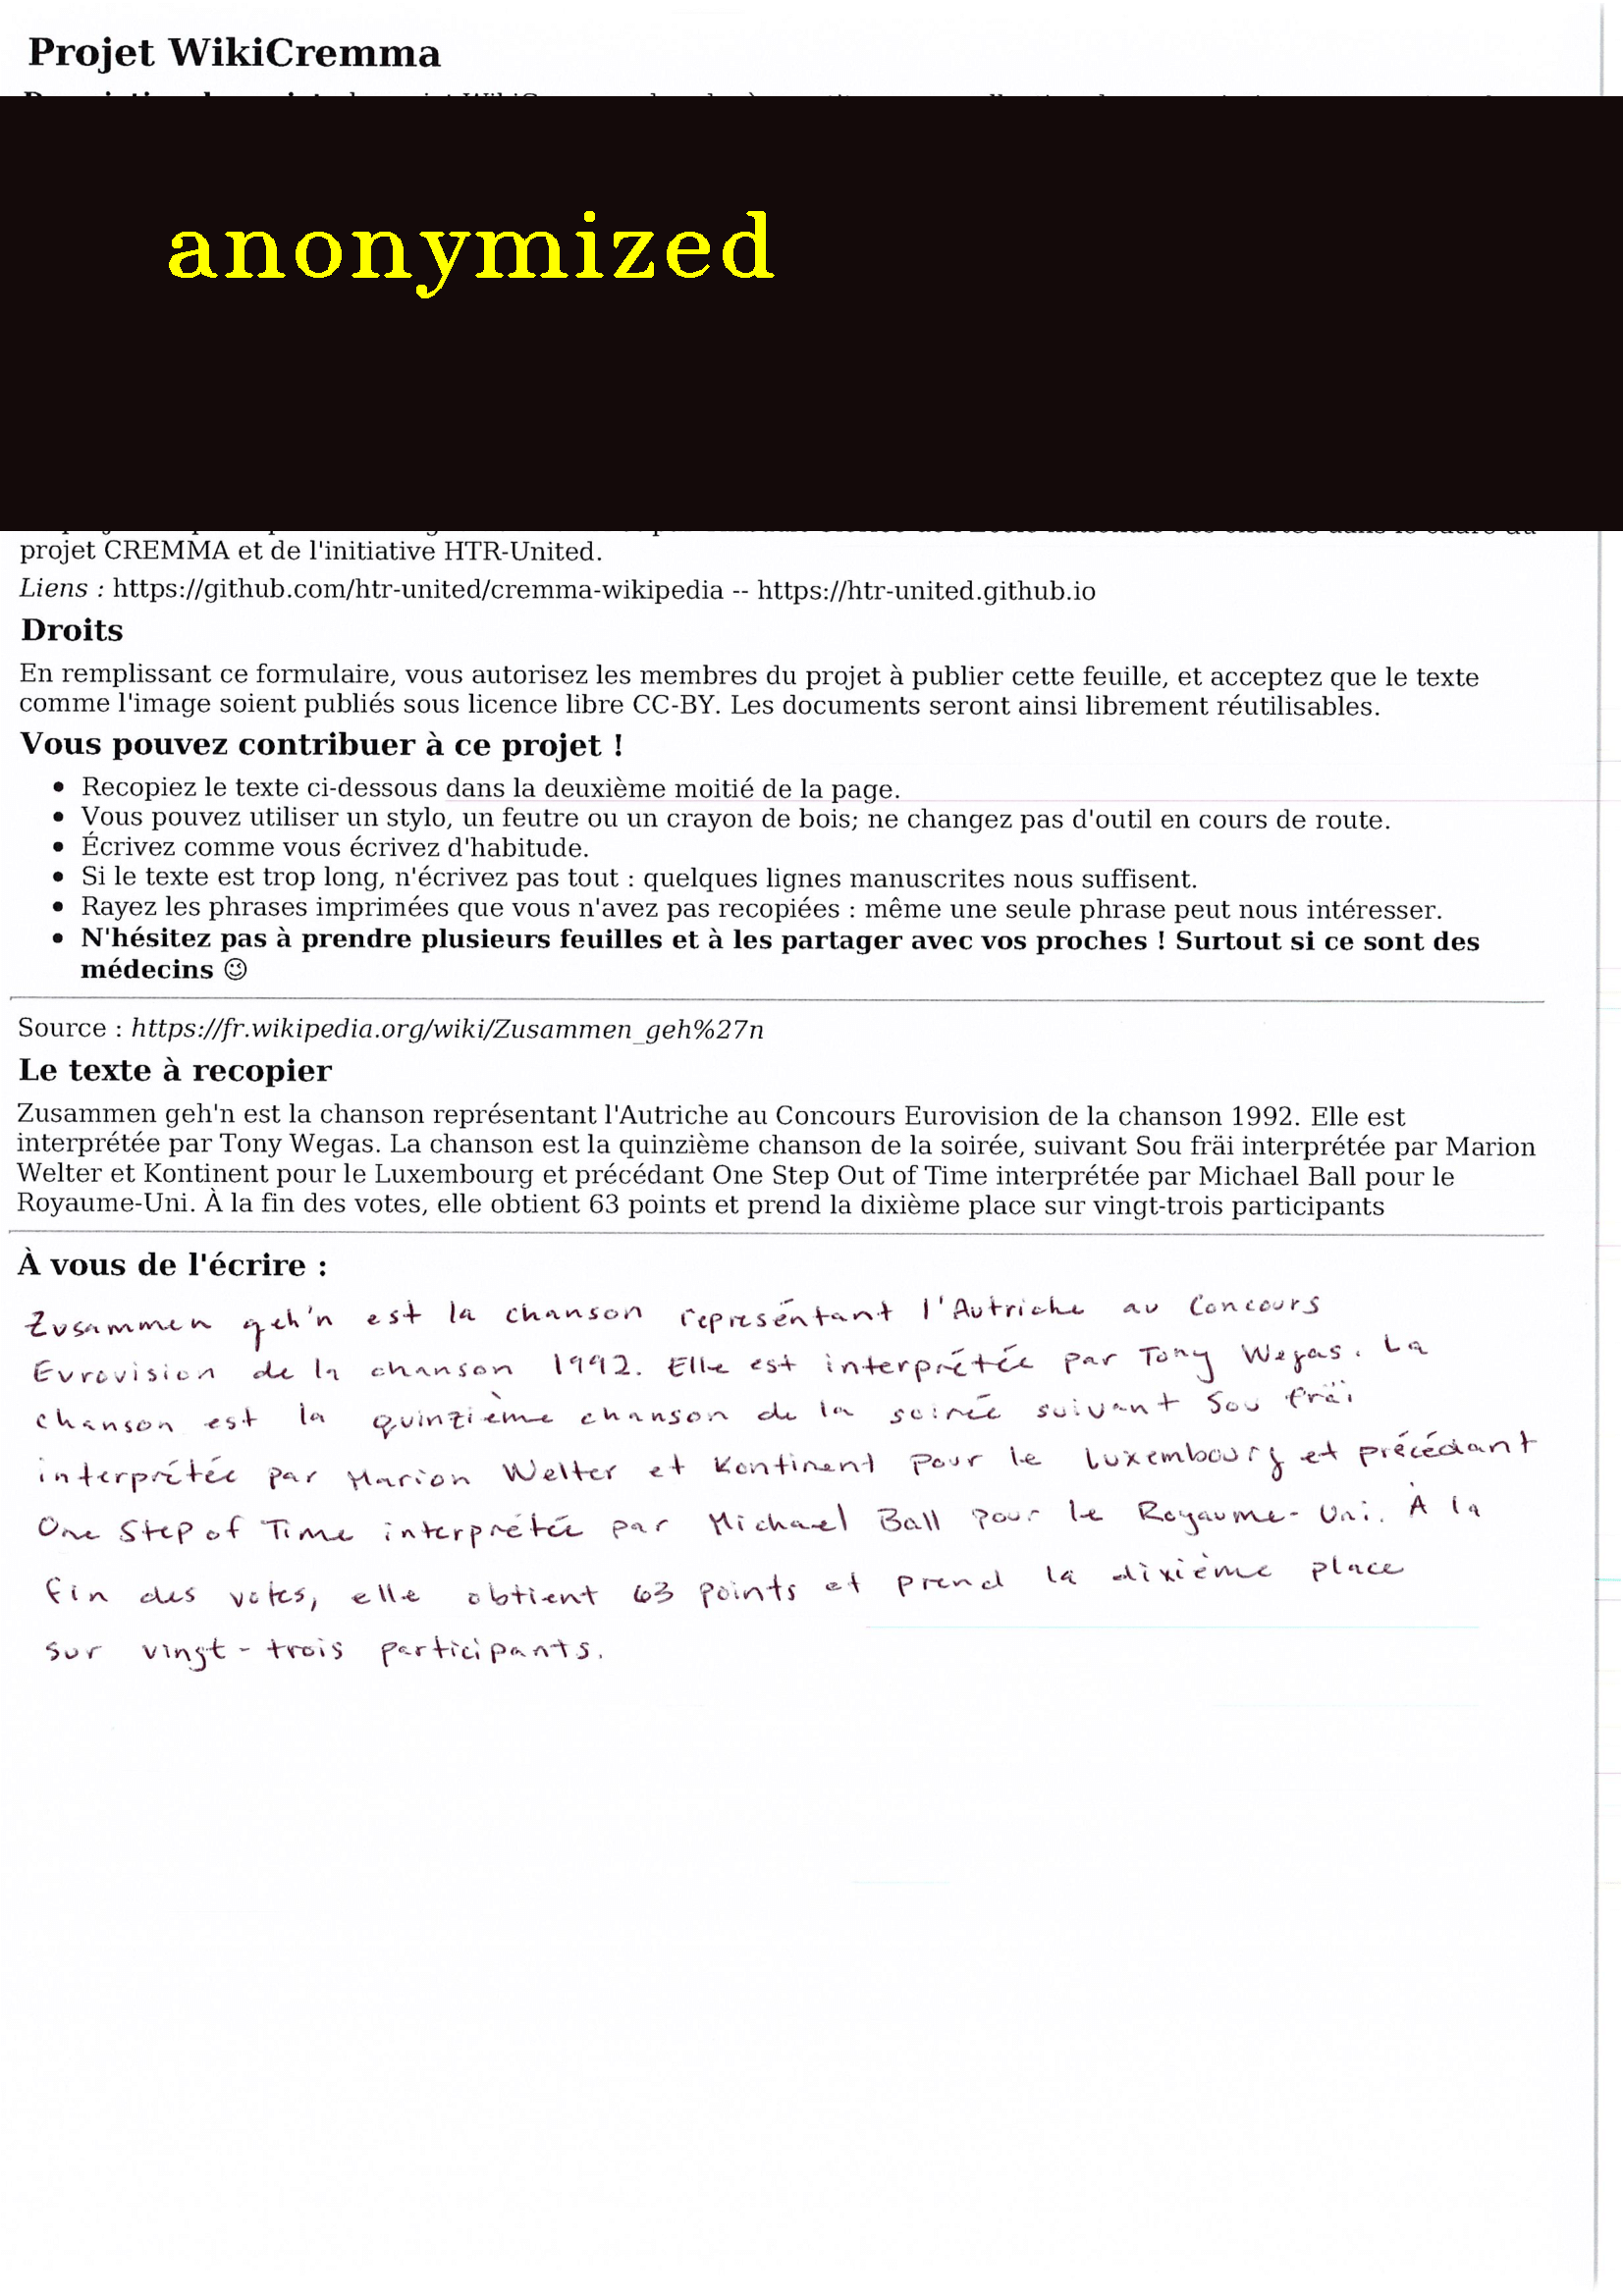 Projet WikiCremma
anonymized
projet CREMMA et de l'initiative HTR-United.
Liens : https://github.com/htr-united/cremma-wikipedia -- https://htr-united.github.io
Droits
En remplissant ce formulaire, vous autorisez les membres du projet à publier cette feuille, et acceptez que le texte
comme l'image soient publiés sous licence libre CC-BY. Les documents seront ainsi librement réutilisables.
Vous pouvez contribuer à ce projet !
• Recopiez le texte ci-dessous dans la deuxième moitié de la page.
• Vous pouvez utiliser un stylo, un feutre ou un crayon de bois; ne changez pas d'outil en cours de route.
• Écrivez comme vous écrivez d'habitude.
• Si le texte est trop long, n'écrivez pas tout : quelques lignes manuscrites nous suffisent.
• Rayez les phrases imprimées que vous n'avez pas recopiées : même une seule phrase peut nous intéresser.
• N'hésitez pas à prendre plusieurs feuilles et à les partager avec vos proches ! Surtout si ce sont des
médecins 😉
Source : https://fr.wikipedia.org/wiki/Zusammen_geh%27n
Le texte à recopier
Zusammen geh'n est la chanson représentant l'Autriche au Concours Eurovision de la chanson 1992. Elle est
interprétée par Tony Wegas. La chanson est la quinzième chanson de la soirée, suivant Sou fräi interprétée par Marion
Welter et Kontinent pour le Luxembourg et précédant One Step Out of Time interprétée par Michael Ball pour le
Royaume-Uni. À la fin des votes, elle obtient 63 points et prend la dixième place sur vingt-trois participants
À vous de l'écrire :
Zusammen geh'n est la chanson represéntant l'Autriche au Concours
Eurovision de la chanson 1992. Elle est interprétée par Tony Wegas. La
chanson est la quinzième chanson de la soirée suivant Sou fräi
interprétée par Marion Welter et Kontinent pour le Luxembourg et précédant
One Step of Time interprétée par Michael Ball pour le Royaume-Uni. À la
fin des votes, elle obtient 63 points et prend la dixième place
sur vingt-trois participants.